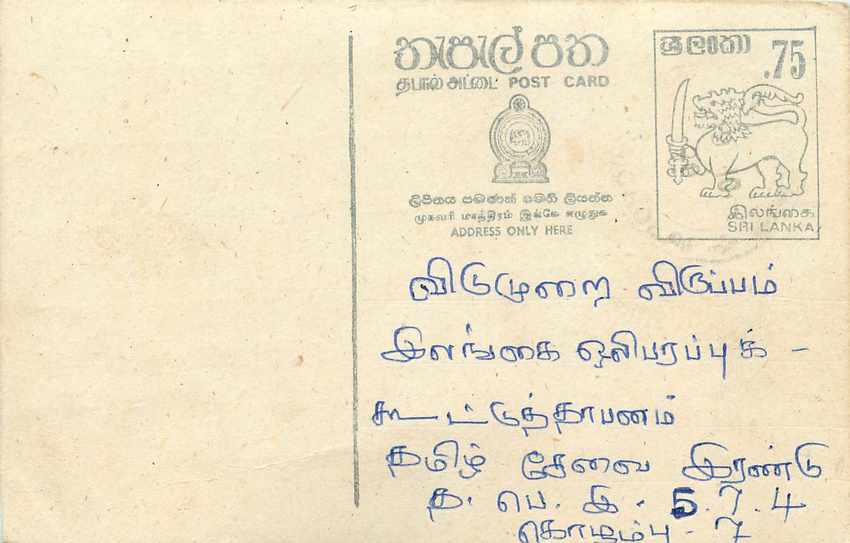 තැපැල් පත
தபால் அட்டை POST CARD
ලිපිනය පමණක් මෙහි ලියන්න
முகவரி மாத்திரம் இங்கே எழுதுக
ADDRESS ONLY HERE
ශ්‍රී ලංකා
.75
இலங்கை
SRI LANKA
விடுமுறை விருப்பம்
இலங்கை ஒலிபரப்புக் -
கூட்டுத்தாபனம்
தமிழ் சேவை இரண்டு
த. பெ. இ. 5.7.4
கொழும்பு - 7